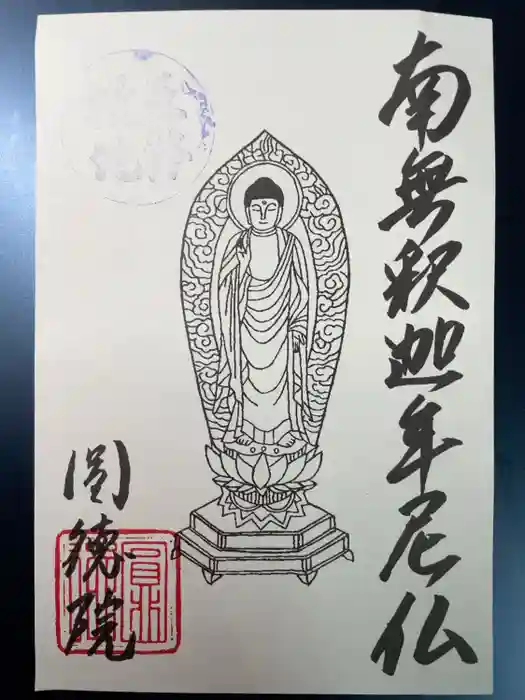 南無釈迦牟尼仏
圓徳院